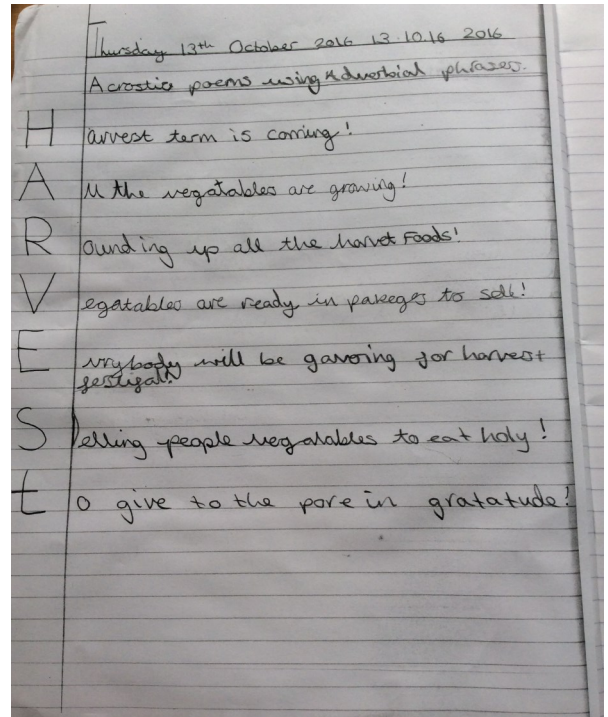 Thursday 13th October 2016 13.10.16 2016
Acrostic poems using Adverbial phrases.
Harvest term is coming!
All the vegatables are growing!
Rounding up all the harvet Foods!
Vegatables are ready in pakeeges to sell!
Evrybody will be gavering for harvest
festigal!
Selling people vegatables to eat holy!
to give to the pore in gratatude!